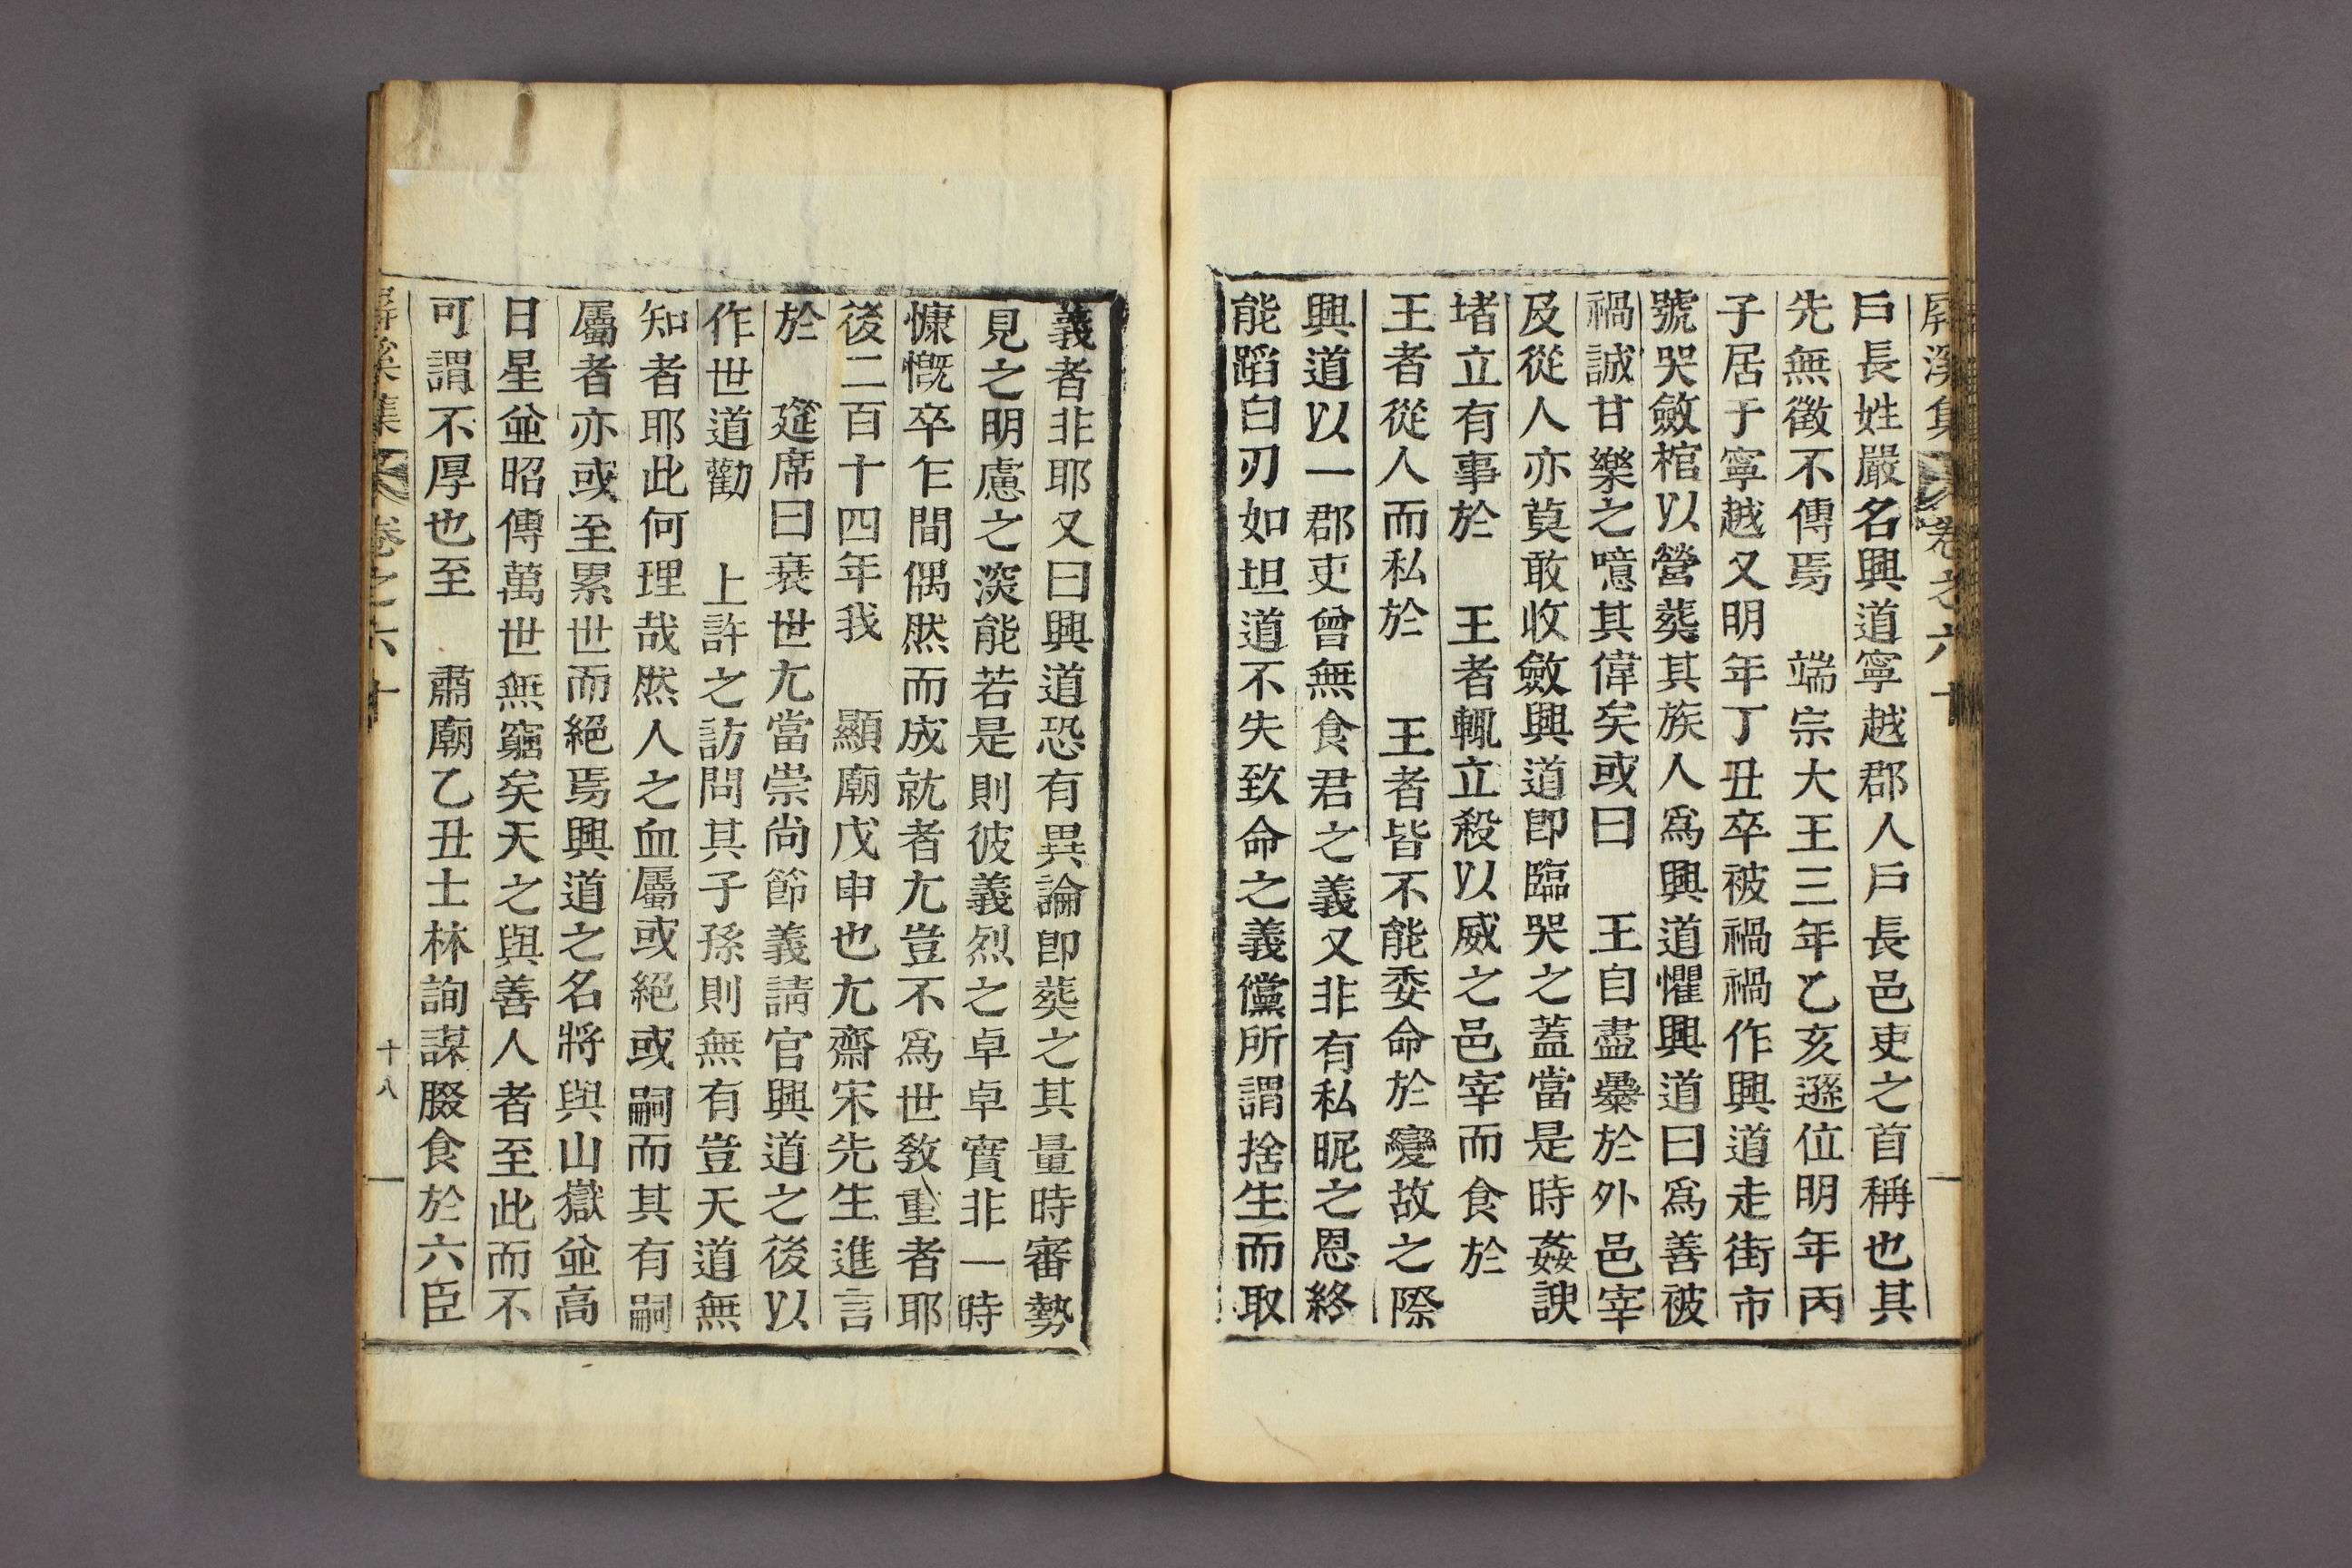 屛溪集 卷之六十
戶長姓嚴名興道寧越郡人戶長邑吏之首稱也其
先無徵不傳焉 端宗大王三年乙亥遜位明年丙
子居于寧越又明年丁丑卒被禍禍作興道走街市
號哭斂棺以營葬其族人爲興道懼興道曰爲善被
禍誠甘樂之噫其偉矣或曰 王自盡暴於外邑宰
及從人亦莫敢收斂興道卽臨哭之蓋當是時姦諛
堵立有事於 王者輒立殺以威之邑宰而食於
王者從人而私於 王者皆不能委命於變故之際
興道以一郡吏曾無食君之義又非有私昵之恩終
能蹈白刃如坦道不失致命之義儻所謂捨生而取
義者非耶又曰興道恐有異論卽葬之其量時審勢
見之明慮之深能若是則彼義烈之卓卓實非一時
慷慨卒乍間偶然而成就者尤豈不爲世敎重者耶
後二百十四年我 顯廟戊申也尤齋宋先生進言
於 筵席曰衰世尤當崇尙節義請官興道之後以
作世道勸 上許之訪問其子孫則無有豈天道無
知者耶此何理哉然人之血屬或絕或嗣而其有嗣
屬者亦或至累世而絕焉興道之名將與山嶽並高
日星並昭傳萬世無窮矣天之與善人者至此而不
可謂不厚也至 肅廟乙丑士林詢謀腏食於六臣
集 卷之六十 十八